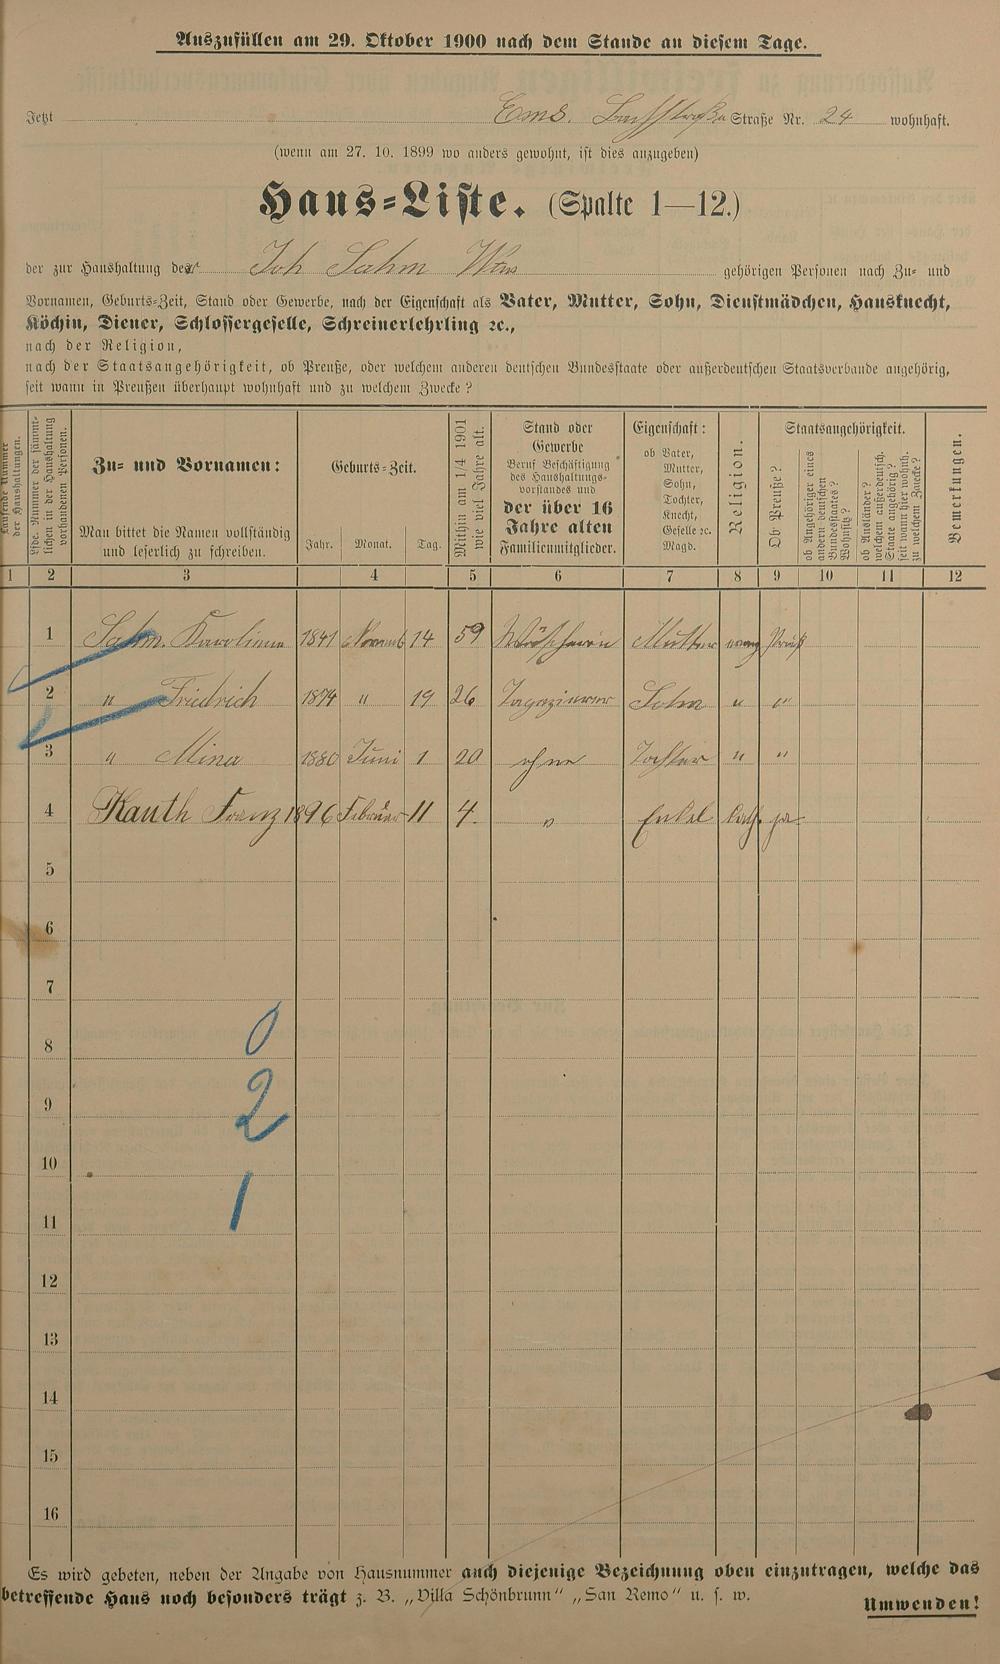 Auszufüllen am 29. Oktober 1900 nach dem Stande an diesem Tage.
Jetzt Ems. Bachstraße Straße Nr. 24 wohnhaft.
(wenn am 27. 10. 1899 wo anders gewohnt, ist dies anzugeben)
Haus-Liste. (Spalte 1—12.)
der zur Haushaltung der Joh Sahm Wws gehörigen Personen nach Zu- und
Vornamen, Geburts-Zeit, Stand oder Gewerbe, nach der Eigenschaft als Vater, Mutter, Sohn, Dienstmädchen, Hausknecht,
Köchin, Diener, Schlossergeselle, Schreinerlehrling ꝛc.,
nach der Religion,
nach der Staatsangehörigkeit, ob Preuße, oder welchem anderen deutschen Bundesstaate oder außerdeutschen Staatsverbande angehörig,
seit wann in Preußen überhaupt wohnhaft und zu welchem Zwecke?
Laufende Nummer der Haushaltungen.
Lfde. Nummer der sämmtlichen in der Haushaltung vorhandenen Personen.
Zu- und Vornamen:
Man bittet die Namen vollständig
und leserlich zu schreiben.
Geburts-Zeit.
Jahr. Monat. Tag.
Mithin am 1/4 1901 wie viel Jahre alt.
Stand oder
Gewerbe
Beruf Beschäftigung
des Haushaltungs-
vorstandes und
der über 16
Jahre alten
Familienmitglieder.
Eigenschaft:
ob Vater,
Mutter,
Sohn,
Tochter,
Knecht,
Geselle ꝛc.
Magd.
Religion.
Staatsangehörigkeit.
Ob Preuße?
ob Angehöriger eines andern deutschen Bundesstaates? Wohnsitz?
ob Ausländer? welchem außerdeutsch. Staate angehörig? seit wann hier wohnh. zu welchem Zwecke?
Bemerkungen.
1 2 3 4 5 6 7 8 9 10 11 12
1 Sahm. Karoline 1841 Novemb 14 59 Wäscherin Mutter evang Preuß
2 " Friedrich 1874 " 19 26 Sohn " "
3 " Mina 1880 Juni 1 20 ohne Tochter " "
4 Kauth Franz 1896 Februar 11 4. " Enkel kath. ja
5
6
7
8 0
9 2
10
11 1
12
13
14
15
16
Es wird gebeten, neben der Angabe von Hausnummer auch diejenige Bezeichnung oben einzutragen, welche das
betreffende Haus noch besonders trägt z. B. „Villa Schönbrunn" „San Remo" u. s. w.
Umwenden!